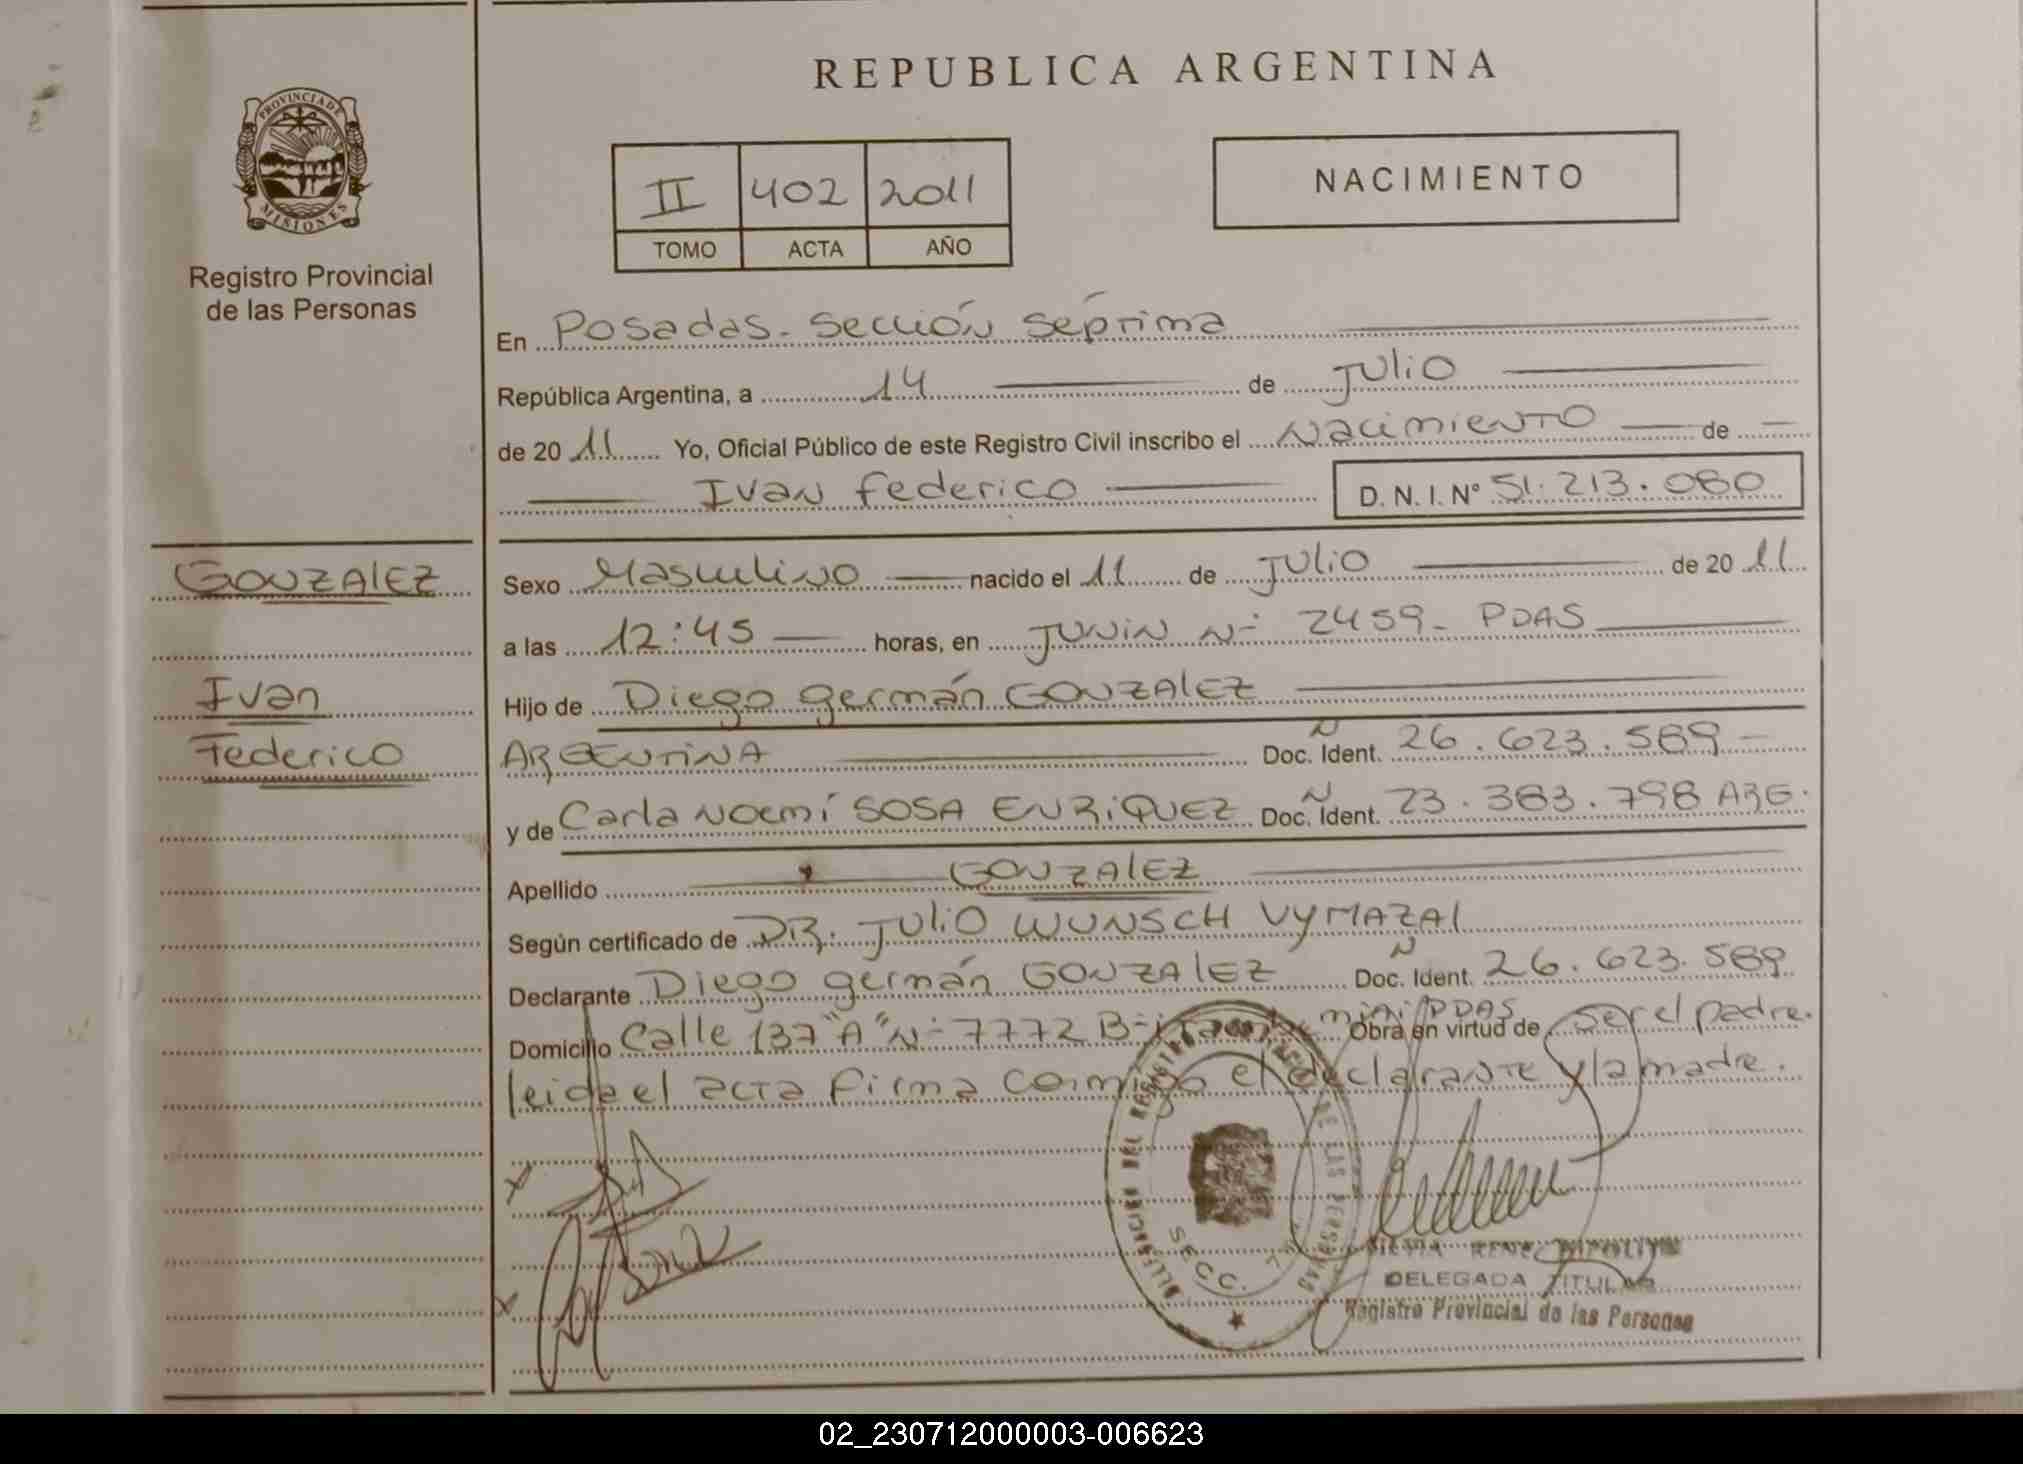 REPUBLICA ARGENTINA
PROVINCIA DE
MISIONES
Registro Provincial
de las Personas
II 402 2011
TOMO ACTA AÑO
NACIMIENTO
En Posadas - Sección Séptima
República Argentina, a 14 de Julio
de 2011 Yo, Oficial Público de este Registro Civil inscribo el Nacimiento de
Ivan Federico D.N.I. Nº 51.213.080
GONZALEZ
Ivan
Federico
Sexo Masculino nacido el 11 de Julio de 2011
a las 12:45 horas, en Junin N- 2459- PDAS
Hijo de Diego germán GONZALEZ
ARGENTINA Doc. Ident. N 26.623.589
y de Carla Noemí SOSA ENRIQUEZ Doc. Ident. N 23.383.798 ARG.
Apellido GONZALEZ
Según certificado de DR. Julio WUNSCH VYMAZAl
Declarante Diego germán GONZALEZ Doc. Ident. N 26.623.589
Domicilio Calle 137 "A" N- 7772 B- PDAS Obra en virtud de ser el padre.
leida el acta firma conmigo el declarante y la madre.
DEL REGISTRO DE LAS PERSONAS
SECC. 7
DELEGADA TITULAR
Registro Provincial de las Personas
02_230712000003-006623